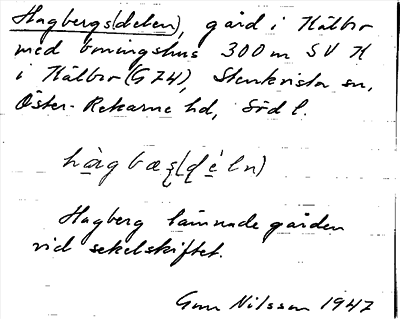 Hagbergs(delen), gård i Kälbro
med boningshus 300 m SV K
i Kälbro (G 74), Stenkvista sn,
Öster-Rekarne hd, Södl.
hàgbæʂ(ɖéln)
Hagberg lämnade gården
vid sekelskiftet.
Gun Nilsson 1947